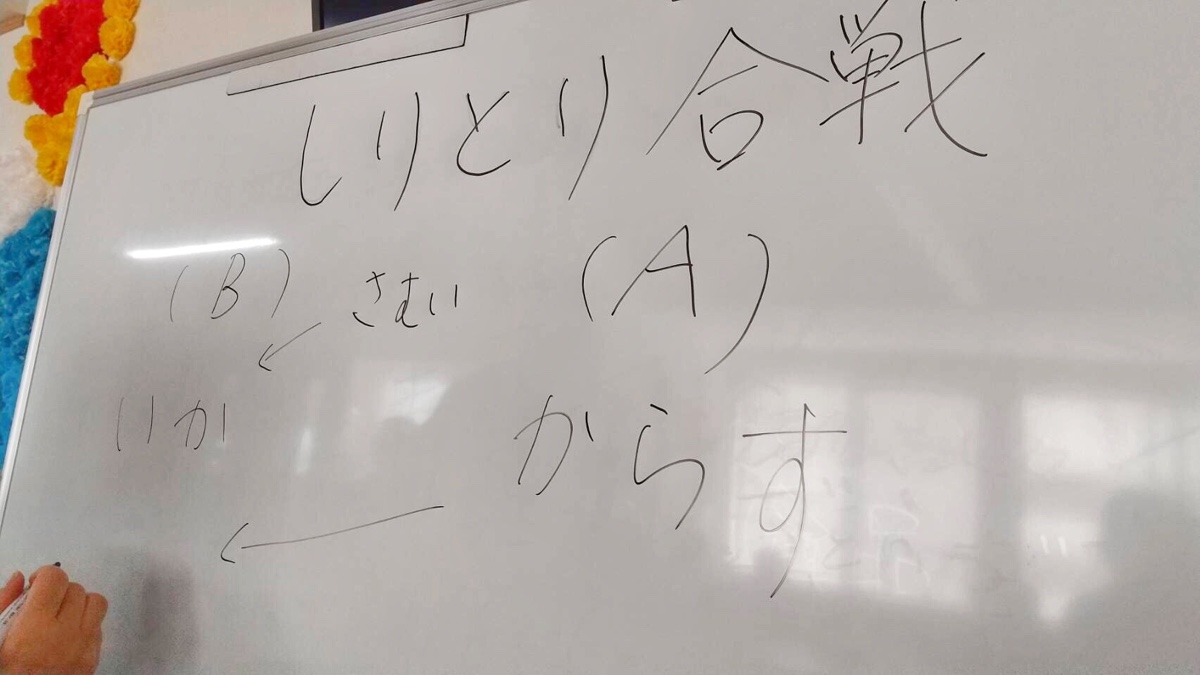 しりとり合戦
(B) さむい (A)
いか からす